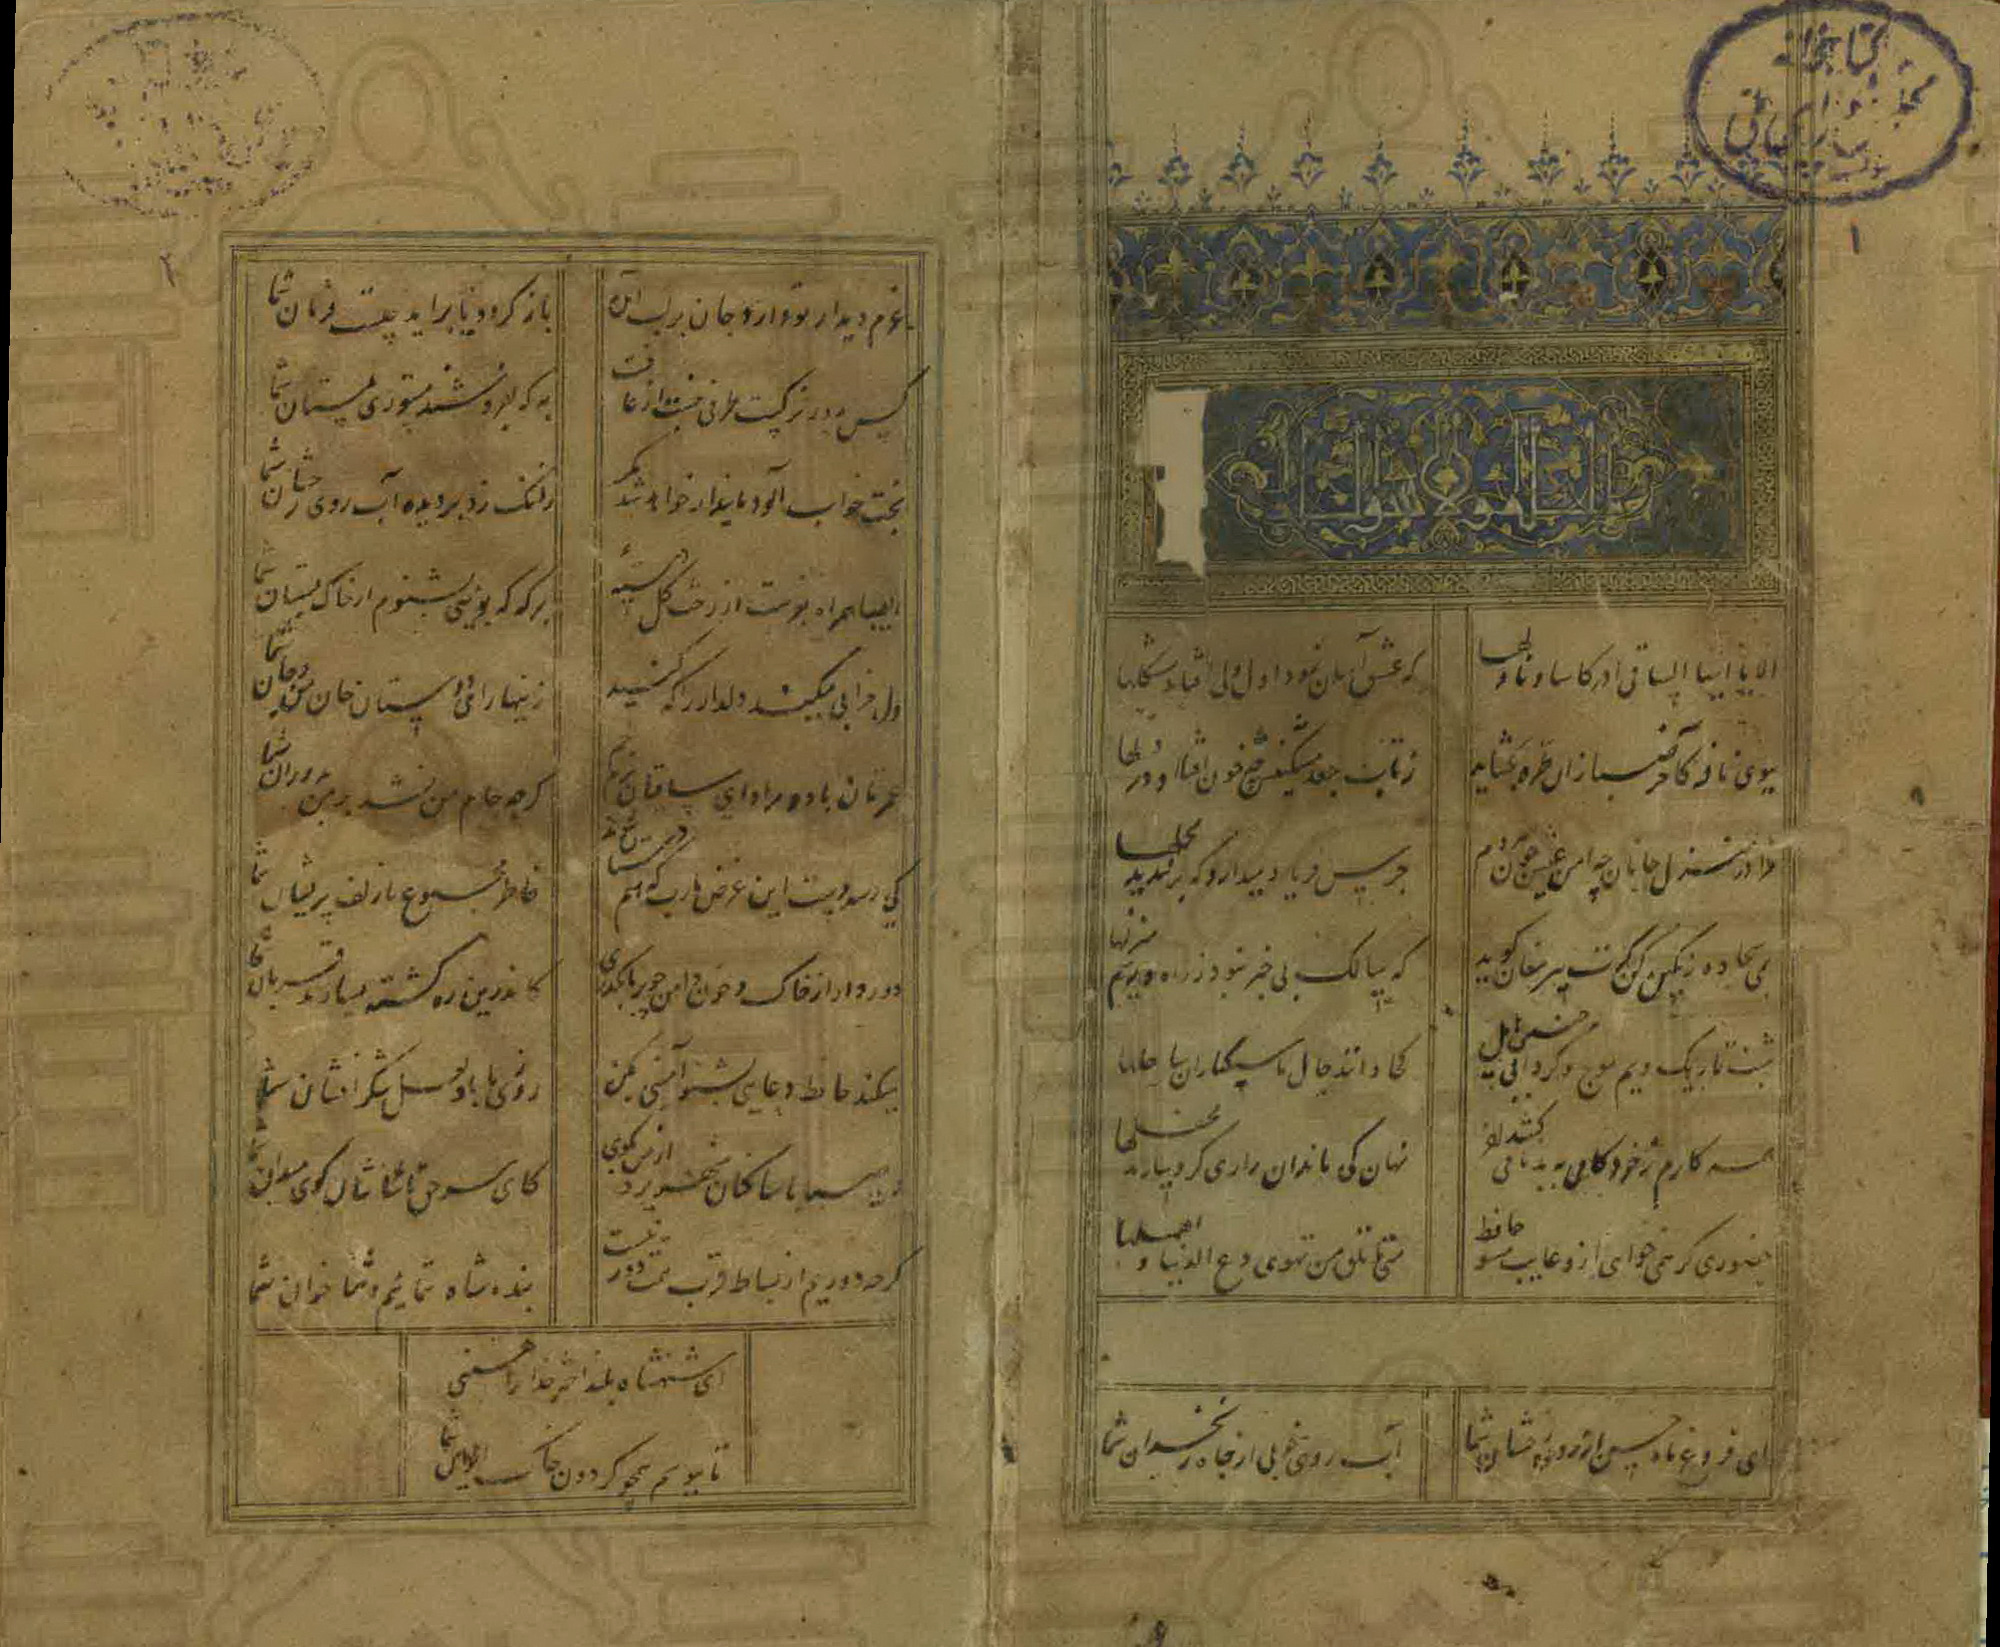 کتابخانه
۱
الا یا ایها الساقی ادر کاسا و ناولها
که عشق آسان نمود اول ولی افتاد مشکلها
ببوی نافه کاخر صبا زان طره بگشاید
ز تاب جعد مشکینش چه خون افتاد در دلها
مرا در منزل جانان چه امن عیش چون هر دم
جرس فریاد میدارد که بربندید محملها
بمی سجاده رنگین کن گرت پیر مغان گوید
که سالک بی خبر نبود ز راه و رسم منزلها
شب تاریک و بیم موج و گردابی چنین هایل
کجا دانند حال ما سبکساران ساحلها
همه کارم ز خود کامی به بدنامی کشید آخر
نهان کی ماند آن رازی کزو سازند محفلها
حضوری گر همی خواهی ازو غایب مشو حافظ
متی ما تلق من تهوی دع الدنیا و اهملها
ای فروغ ماه حسن از روی رخشان شما
آب روی خوبی از چاه زنخدان شما
۲
عزم دیدار تو دارد جان بر لب آمده
باز گردد یا براید چیست فرمان شما
کس بدور نرگست طرفی نبست از عافیت
به که نفروشند مستوری بمستان شما
بخت خواب آلود ما بیدار خواهد شد مگر
زانک زد بر دیده آب روی رخشان شما
با صبا همراه بفرست از رخت گل دسته
بو که بویی بشنوم از خاک بستان شما
دل خرابی میکند دلدار را آگه کنید
زینهار ای دوستان جان من و جان شما
عمرتان باد و مراد ای ساقیان بزم جم
گرچه جام من نشد پر می بدوران شما
کی دهد دست این غرض یارب که همدستان شوند
خاطر مجموع ما زلف پریشان شما
دور دار از خاک و خون دامن چو بر ما بگذری
کاندرین ره کشته بسیارند قربان شما
میکند حافظ دعایی بشنو آمینی بگن
روزی ما باد لعل شکر افشان شما
ای صبا با ساکنان شهر یزد از من بگوی
کای سر حق ناشناسان گوی میدان شما
گرچه دوریم از بساط قرب همت دور نیست
بنده شاه شمائیم و ثنا خوان شما
ای شهنشاه بلند اختر خدا را همتی
تا ببوسم همچو گردون خاک ایوان شما